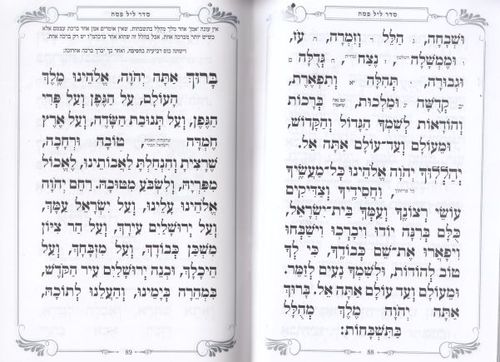 סדר ליל פסח
וּשְׁבָחָה, הַלֵּל וְזִמְרָה, עֹז,
וּמֶמְשָׁלָה נֶצַח, גְּדֻלָּה,
וּגְבוּרָה, תְּהִלָּה וְתִפְאֶרֶת,
קְדֻשָּׁה וּמַלְכוּת, בְּרָכוֹת
וְהוֹדָאוֹת לְשִׁמְךָ הַגָּדוֹל וְהַקָּדוֹשׁ,
וּמֵעוֹלָם וְעַד־עוֹלָם אַתָּה אֵל.
יְהַלְלוּךָ יְהֹוָה אֱלֹהֵינוּ כָּל־מַעֲשֶׂיךָ
וַחֲסִידֶיךָ וְצַדִּיקִים
עוֹשֵׂי רְצוֹנֶךָ וְעַמְּךָ בֵּית־יִשְׂרָאֵל,
כֻּלָּם בְּרִנָּה יוֹדוּ וִיבָרְכוּ וִישַׁבְּחוּ
וִיפָאֲרוּ אֶת־שֵׁם כְּבוֹדֶךָ, כִּי לְךָ
טוֹב לְהוֹדוֹת, וּלְשִׁמְךָ נָעִים לְזַמֵּר.
וּמֵעוֹלָם וְעַד עוֹלָם אַתָּה אֵל. בָּרוּךְ
אַתָּה יְהֹוָה מֶלֶךְ מְהֻלָּל
בַּתִּשְׁבָּחוֹת:
88
סדר ליל פסח
וישתה כוס רביעית בהסיבה. ואחר כך יברך ברכה אחרונה:
בָּרוּךְ אַתָּה יְהֹוָה, אֱלֹהֵינוּ מֶלֶךְ
הָעוֹלָם, עַל הַגֶּפֶן וְעַל פְּרִי
הַגֶּפֶן, וְעַל תְּנוּבַת הַשָּׂדֶה, וְעַל אֶרֶץ
חֶמְדָּה, טוֹבָה וּרְחָבָה,
שֶׁרָצִיתָ וְהִנְחַלְתָּ לַאֲבוֹתֵינוּ, לֶאֱכוֹל
מִפִּרְיָהּ, וְלִשְׂבֹּעַ מִטּוּבָהּ. רַחֵם יְהֹוָה
אֱלֹהֵינוּ עָלֵינוּ, וְעַל יִשְׂרָאֵל עַמֶּךָ,
וְעַל יְרוּשָׁלַיִם עִירֶךָ, וְעַל הַר צִיּוֹן
מִשְׁכַּן כְּבוֹדֶךָ, וְעַל מִזְבְּחֶךָ, וְעַל
הֵיכָלֶךָ, וּבְנֵה יְרוּשָׁלַיִם עִיר הַקֹּדֶשׁ,
בִּמְהֵרָה בְיָמֵינוּ, וְהַעֲלֵנוּ לְתוֹכָהּ,
89